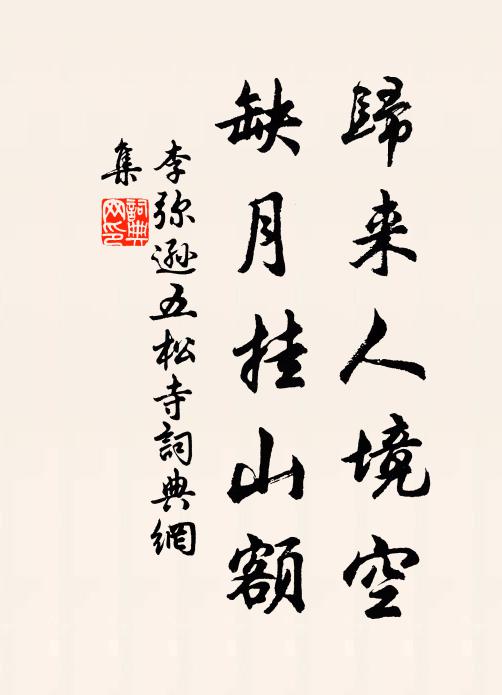 歸来人境空
缺月挂山額
李弥遜五松寺詞典網
集
詞典網印